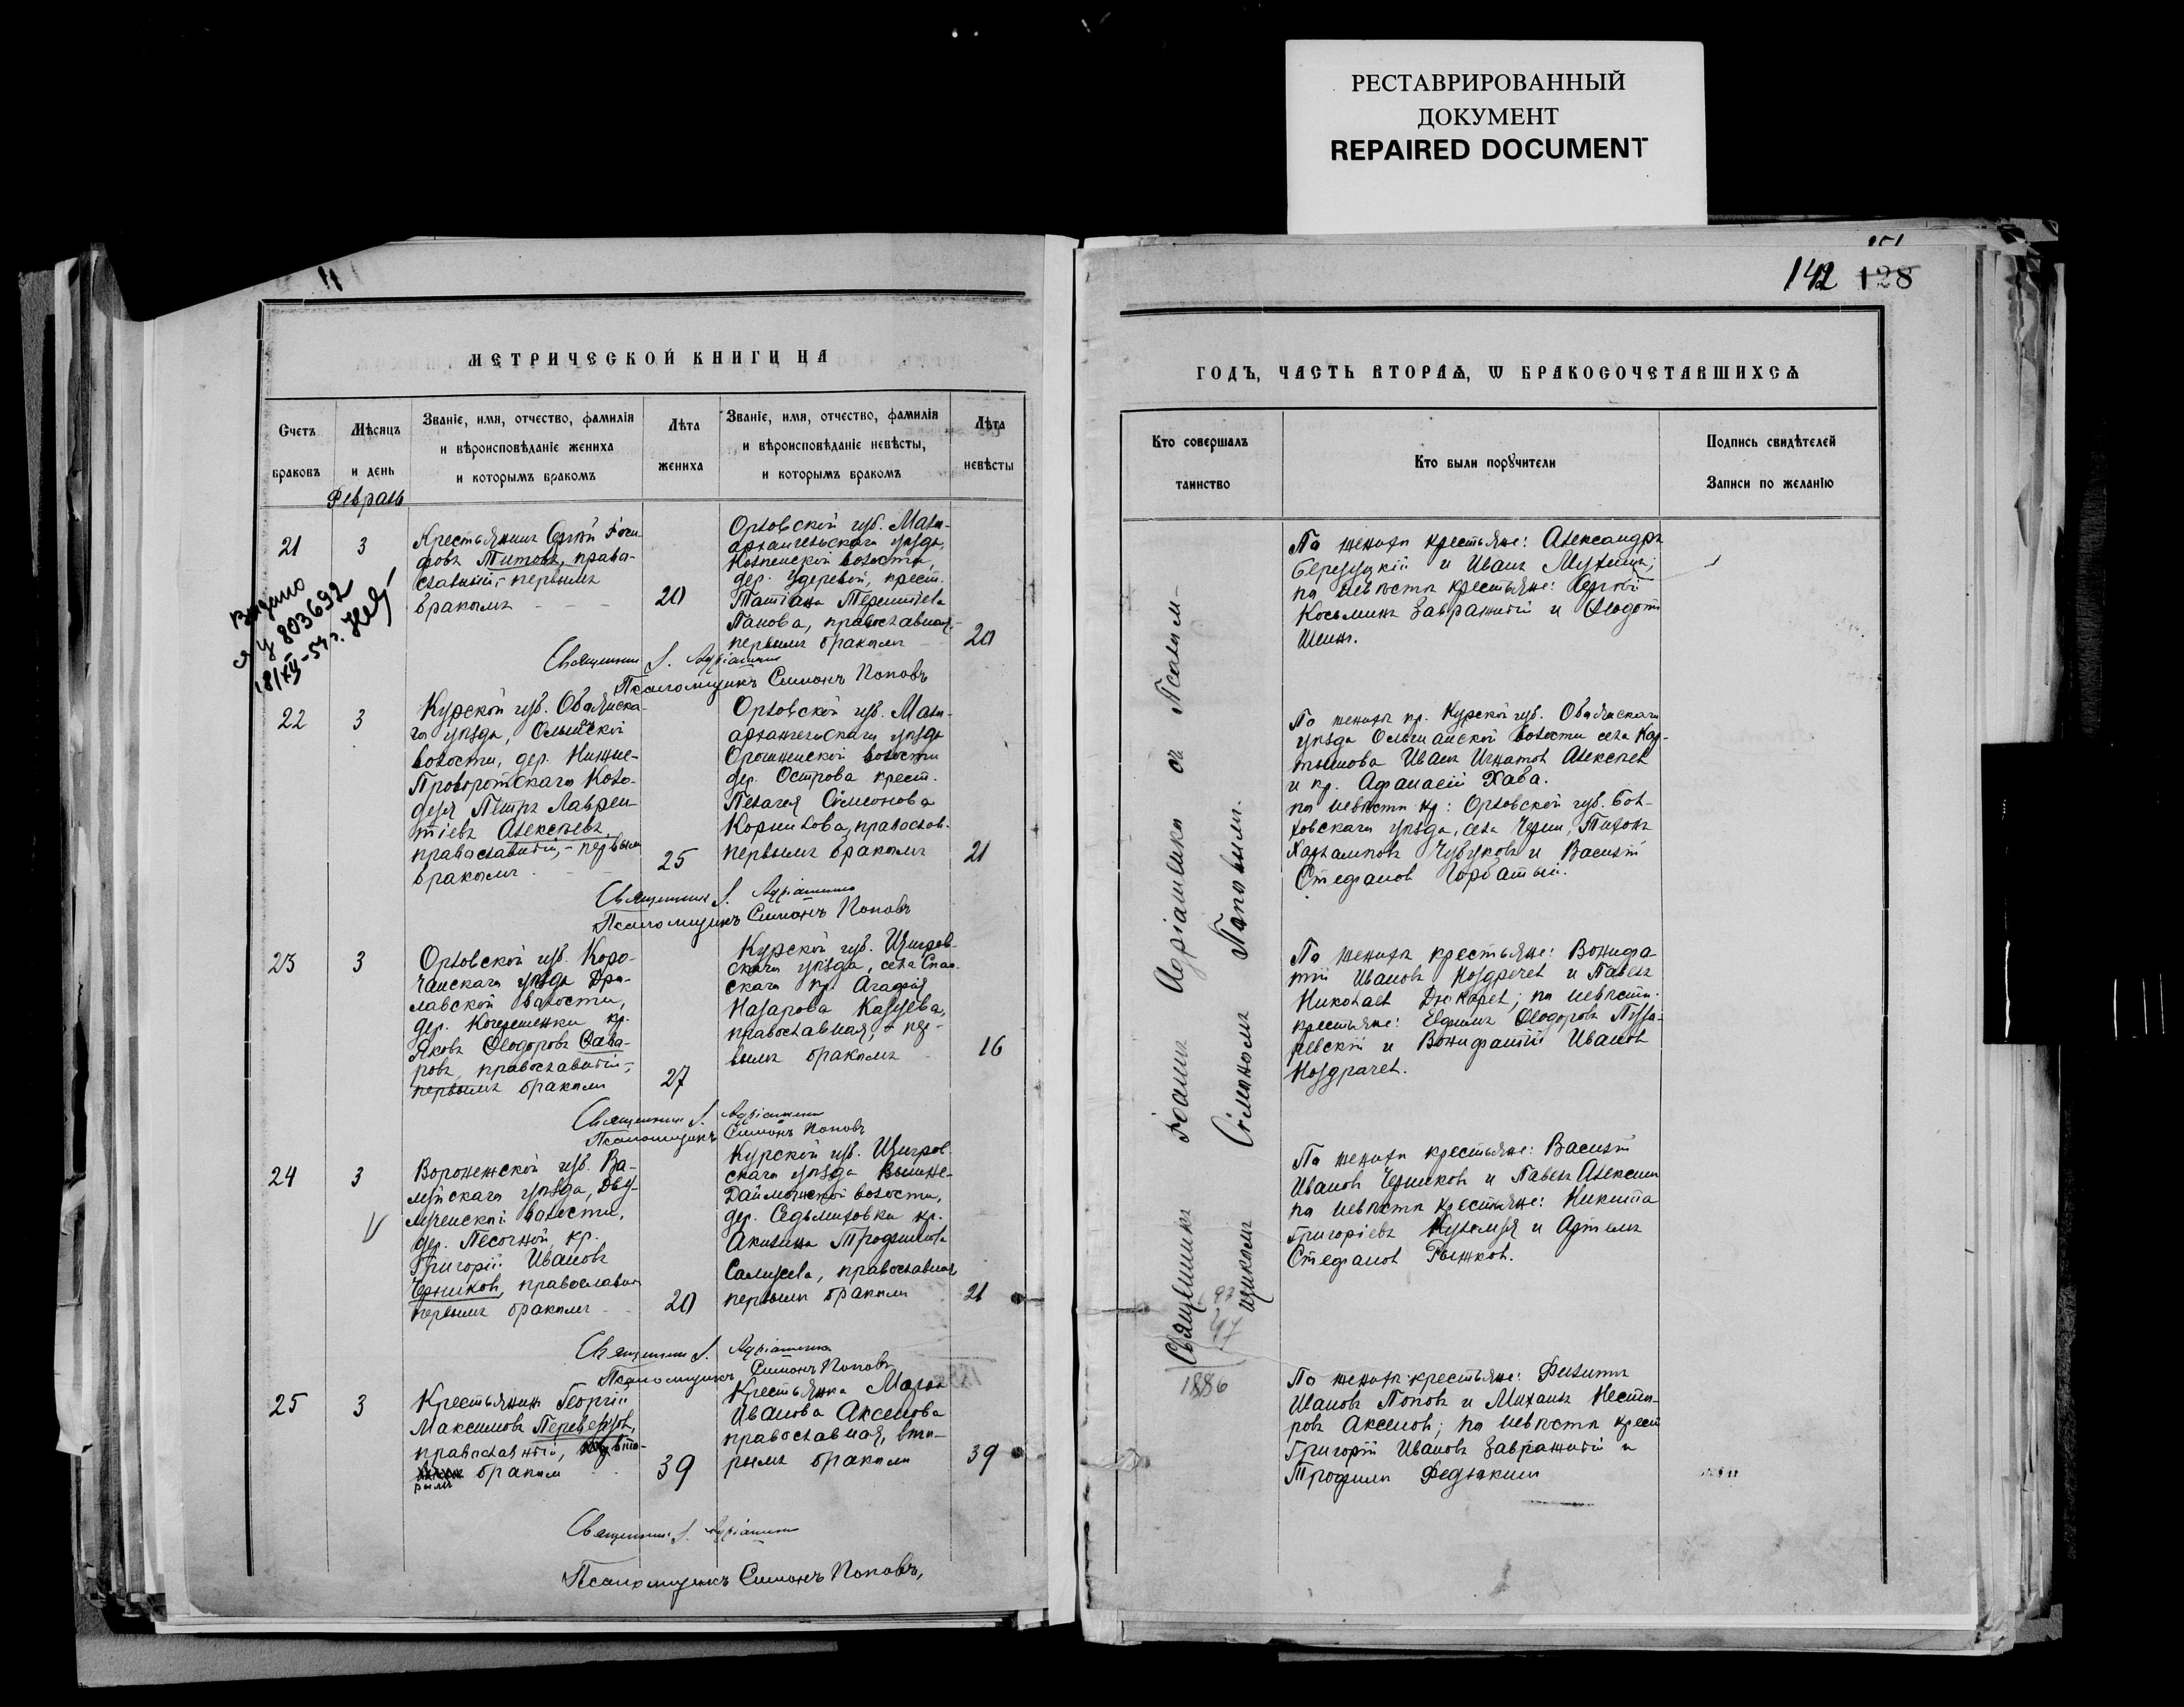 РЕСТАВРИРОВАННЫЙ
ДОКУМЕНТ
REPAIRED DOCUMENT
142 128
МЕТРИЧЕСКОЙ КНИГИ НА
Счетъ
браковъ
Мѣсяцъ
и день
Званіе, имя, отчество, фамилія
и вѣроисповѣданіе жениха
и которымъ бракомъ
Лѣта
жениха
Званіе, имя, отчество, фамилія
и вѣроисповѣданіе невѣсты,
и которымъ бракомъ
Лѣта
невѣсты
Февраль
21
3
Крестьянинъ Сергѣй
Титовъ, право-
славный, первымъ
бракомъ
20
Орловской губ. Мало-
архангельскаго уѣзда,
волости,
дер. Удеревой, крест.
Татіана Терентіева
Панова, православная,
первымъ бракомъ
20
Выдано
803692
18/XII-54 г.
Священникъ І. Адріашенко
Псаломщикъ Симонъ Поповъ
22
3
Курской губ. Обоянска-
го уѣзда, Ольшанской
волости, дер. Нижне-
Проворотскаго Коло-
дезя Петръ Лаврен-
тіевъ Алексѣевъ,
православный, - первымъ
бракомъ
25
Орловской губ. Мало-
архангельскаго уѣзда
волости
дер. Острова крест.
Пелагея Сімеонова
Корнилова, православ.
первымъ бракомъ
21
Священникъ І. Адріашенко
Псаломщикъ Симонъ Поповъ
23
3
Орловской губ. Коро-
чанскаго уѣзда
волости,
дер. кр.
Яковъ Ѳеодоровъ Сава-
ровъ, православный,
первымъ бракомъ
27
Курской губ. Щигров-
скаго уѣзда, села Спас-
скаго кр. Агафія
Назарова
православная, - пер-
вымъ бракомъ
16
Священникъ І. Адріашенко
Псаломщикъ Симонъ Поповъ
24
3
Воронежской губ. Ва-
луйскаго уѣзда, Двулу-
волости,
дер. Песочной, кр.
Григорій Ивановъ
Черниковъ, православный
первымъ бракомъ
20
Курской губ. Щигров-
скаго уѣзда Вышне-
Дайменской волости,
дер. Седьмиховки кр.
Акилина Трофимова
православная
первымъ бракомъ
21
Священникъ І. Адріашенко
Псаломщикъ Симонъ Поповъ
25
3
Крестьянинъ Георгій
Максимовъ Переверзевъ,
православный, вто-
рымъ бракомъ
39
Крестьянка Марѳа
Иванова Аксенова
православная, вто-
рымъ бракомъ
39
Священникъ І. Адріашенко
Псаломщикъ Симонъ Поповъ,
ГОДЪ, ЧАСТЬ ВТОРАЯ, Ѡ БРАКОСОЧЕТАВШИХСЯ
Кто совершалъ
таинство
Кто были порꙋчители
Подпись свидѣтелей
Записи по желанію
Священникъ Іоаннъ Адріашенко съ Псалом-
щикомъ Сімономъ Поповымъ.
1886
По женихѣ крестьяне: Александръ
и Иванъ
по невѣстѣ крестьяне: Сергѣй
Косьминъ Завражный и Ѳеодотъ
Шеинъ.
По женихѣ кр. Курской губ. Обоянскаго
уѣзда Ольшанской волости села
Иванъ Игнатовъ Алексѣевъ
и кр. Афанасій Хава.
по невѣстѣ кр: Орловской губ. Бол-
ховскаго уѣзда, села Тихонъ
и Василій
Стефановъ Горбатый.
По женихѣ крестьяне: Вонифа-
тій Ивановъ Ноздрачевъ и Павелъ
Николаевъ Дюкаревъ; по невѣстѣ
крестьяне: Евфимъ Ѳеодоровъ
и Вонифатій Ивановъ
Ноздрачевъ.
По женихѣ крестьяне: Василій
Ивановъ Черниковъ и Павелъ
по невѣстѣ крестьяне: Никита
Григоріевъ и Артемъ
Стефановъ Рыжковъ.
По женихѣ крестьяне: Филиппъ
Ивановъ Поповъ и Михаилъ Несто-
ровъ Аксеновъ; по невѣстѣ крест
Григорій Ивановъ Завражный и
Трофимъ Федюкинъ